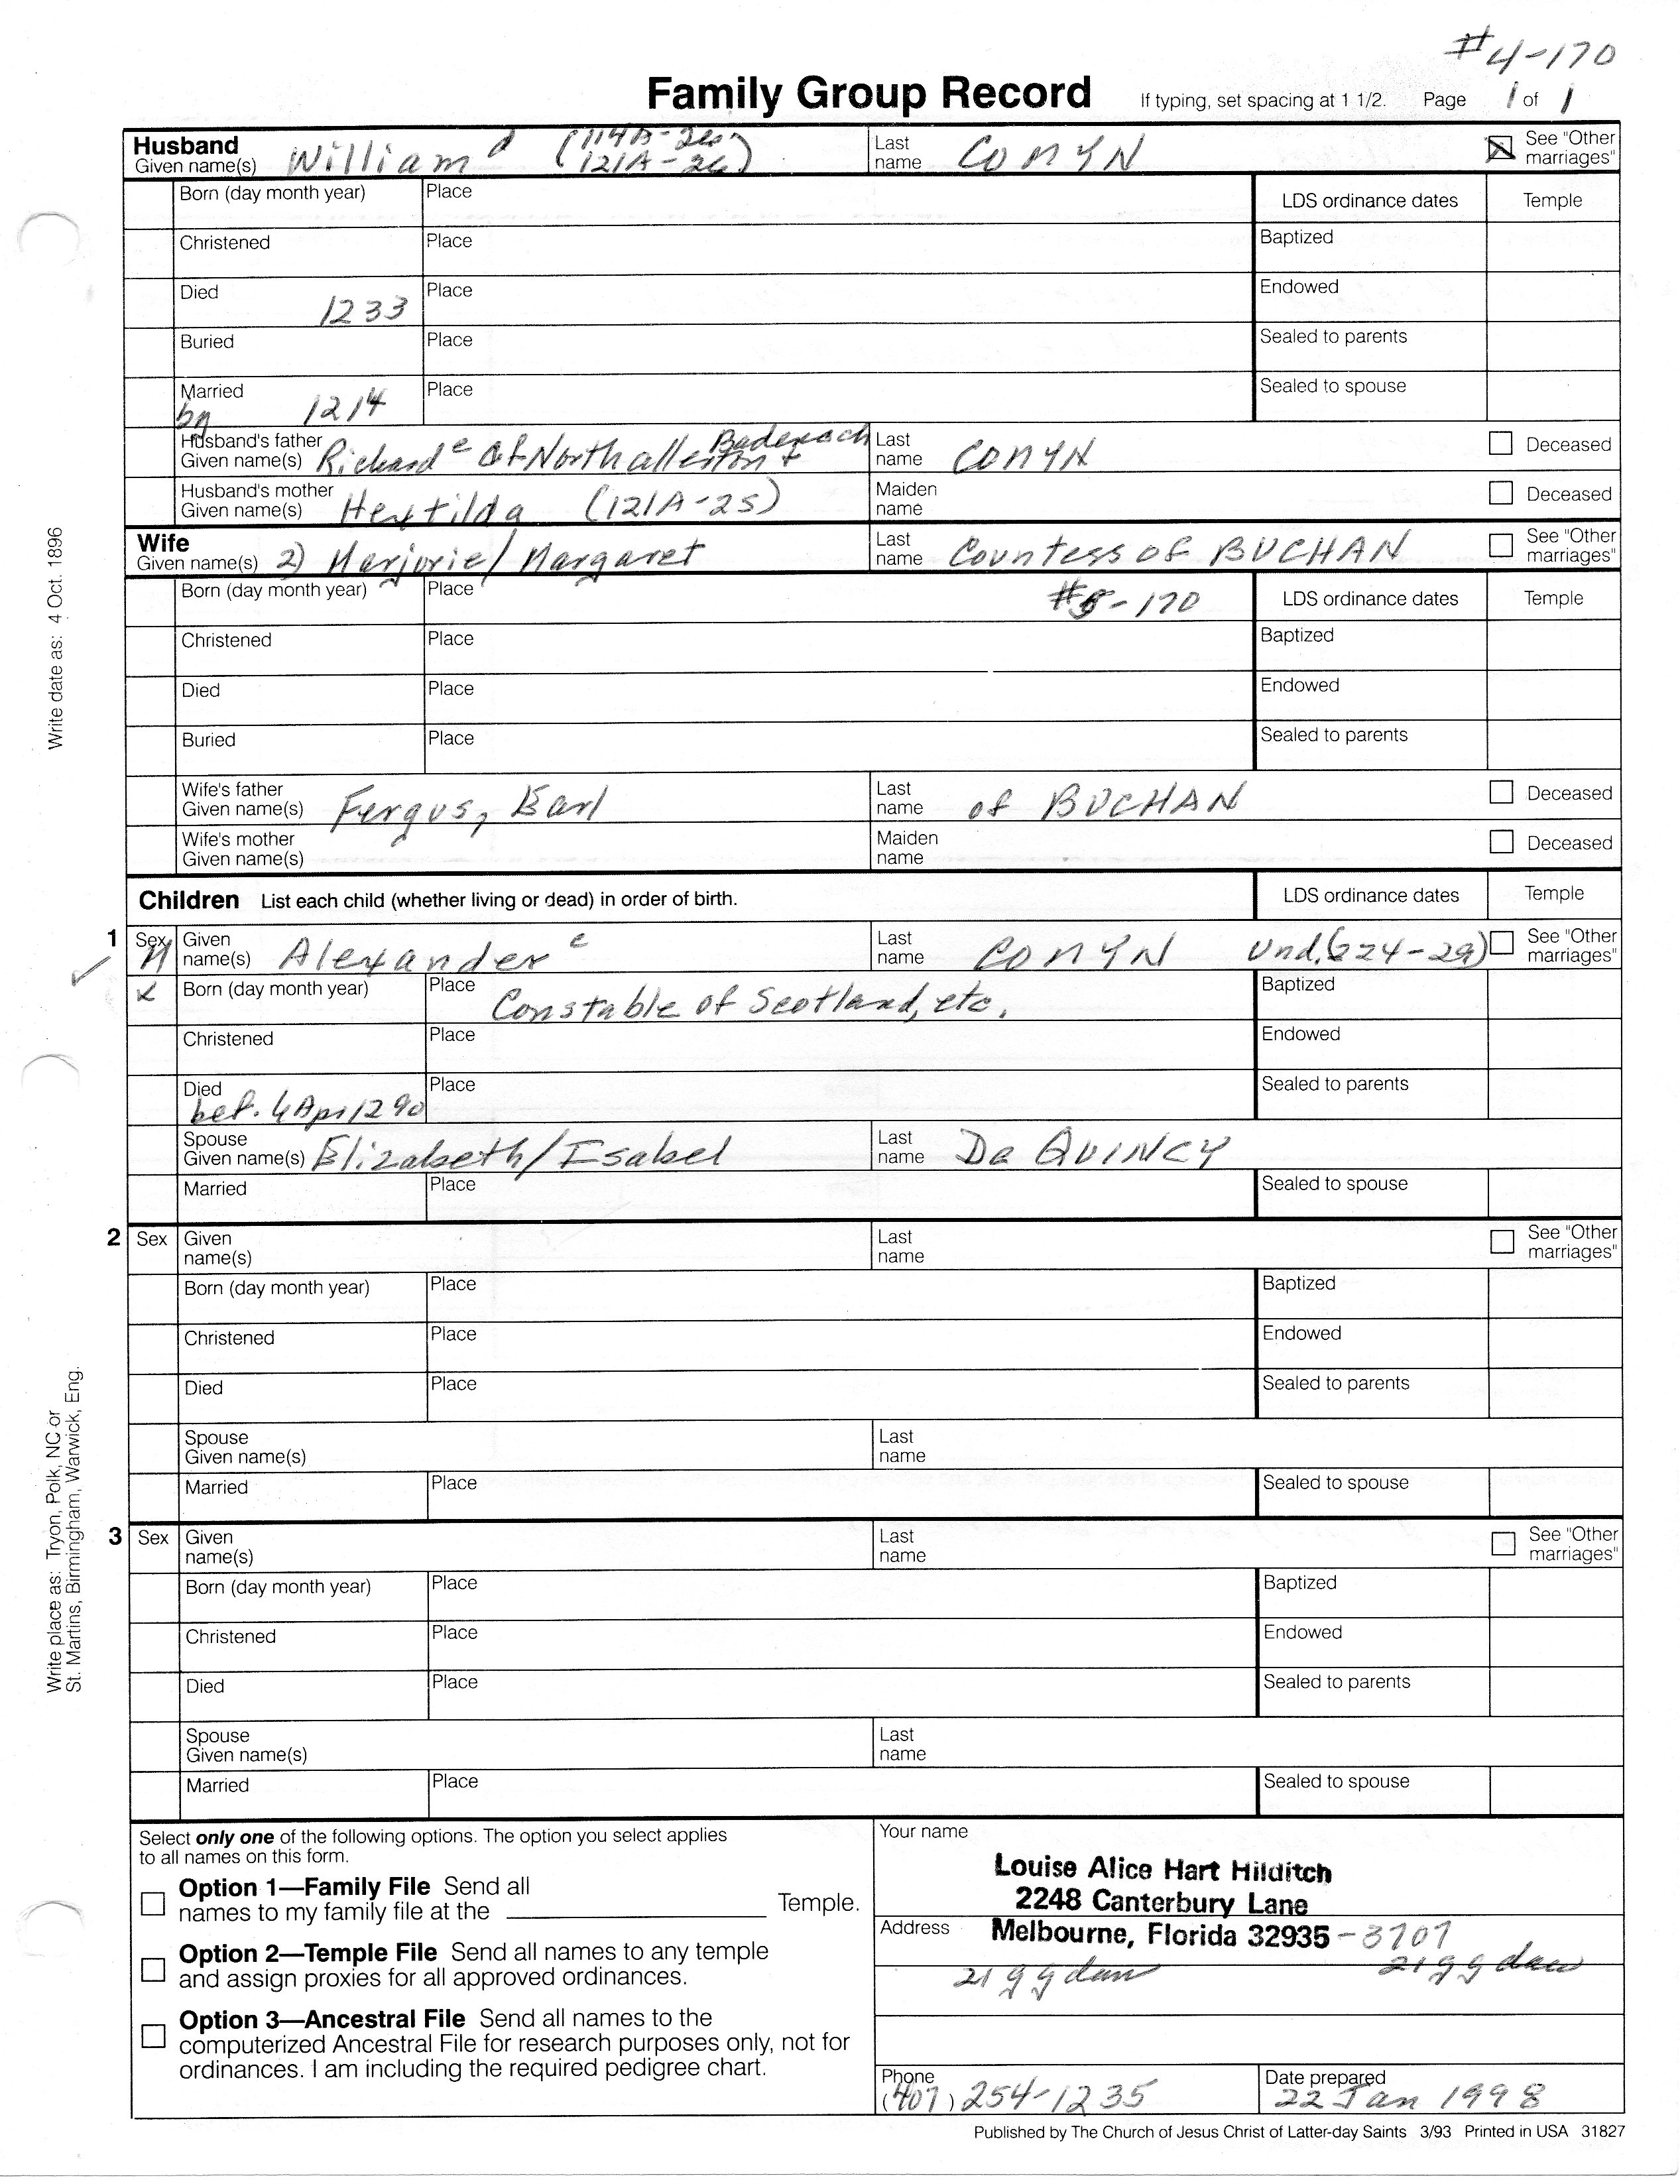 #4-170
Family Group Record If typing, set spacing at 1 1/2. Page 1 of 1
Husband Given name(s) William d (114A-26, 121A-26) Last name COMYN See "Other marriages"
Born (day month year) Place LDS ordinance dates Temple
Christened Place Baptized
Died 1233 Place Endowed
Buried Place Sealed to parents
Married by 1214 Place Sealed to spouse
Husband's father Given name(s) Richard e of Northallerton + Badenoch Last name COMYN Deceased
Husband's mother Given name(s) Hextilda (121A-25) Maiden name Deceased
Wife Given name(s) 2) Marjorie/Margaret Last name Countess of BUCHAN See "Other marriages"
Born (day month year) Place #5-170 LDS ordinance dates Temple
Christened Place Baptized
Died Place Endowed
Buried Place Sealed to parents
Wife's father Given name(s) Fergus, Earl Last name of BUCHAN Deceased
Wife's mother Given name(s) Maiden name Deceased
Children List each child (whether living or dead) in order of birth. LDS ordinance dates Temple
1 Sex M Given name(s) Alexander c Last name COMYN Und. (224-29) See "Other marriages"
x Born (day month year) Place Constable of Scotland, etc. Baptized
Christened Place Endowed
Died bef. 6 Apr 1290 Place Sealed to parents
Spouse Given name(s) Elizabeth/Isabel Last name De QUINCY
Married Place Sealed to spouse
2 Sex Given name(s) Last name See "Other marriages"
Born (day month year) Place Baptized
Christened Place Endowed
Died Place Sealed to parents
Spouse Given name(s) Last name
Married Place Sealed to spouse
3 Sex Given name(s) Last name See "Other marriages"
Born (day month year) Place Baptized
Christened Place Endowed
Died Place Sealed to parents
Spouse Given name(s) Last name
Married Place Sealed to spouse
Select only one of the following options. The option you select applies
to all names on this form.
Option 1—Family File Send all
names to my family file at the Temple.
Option 2—Temple File Send all names to any temple
and assign proxies for all approved ordinances.
Option 3—Ancestral File Send all names to the
computerized Ancestral File for research purposes only, not for
ordinances. I am including the required pedigree chart.
Your name
Louise Alice Hart Hilditch
2248 Canterbury Lane
Address Melbourne, Florida 32935-3707
21 gg dau 21 gg dau
Phone (407) 254-1235 Date prepared 22 Jan 1998
Published by The Church of Jesus Christ of Latter-day Saints 3/93 Printed in USA 31827
Write date as: 4 Oct. 1896
Write place as: Tryon, Polk, NC or
St. Martins, Birmingham, Warwick, Eng.